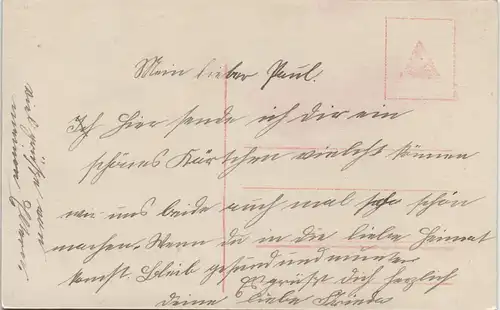 Mein lieber Paul.
Ich hier sende ich dir ein
schönes Kärtchen vielcht können
wir uns beide auch mal so schön
machen. Wenn du in die liebe Heimat
komst Bleib gesund und munter
Es grüsst Dich herzlich
deine liebe Frieda
viel grüsse von
meinen Eltern